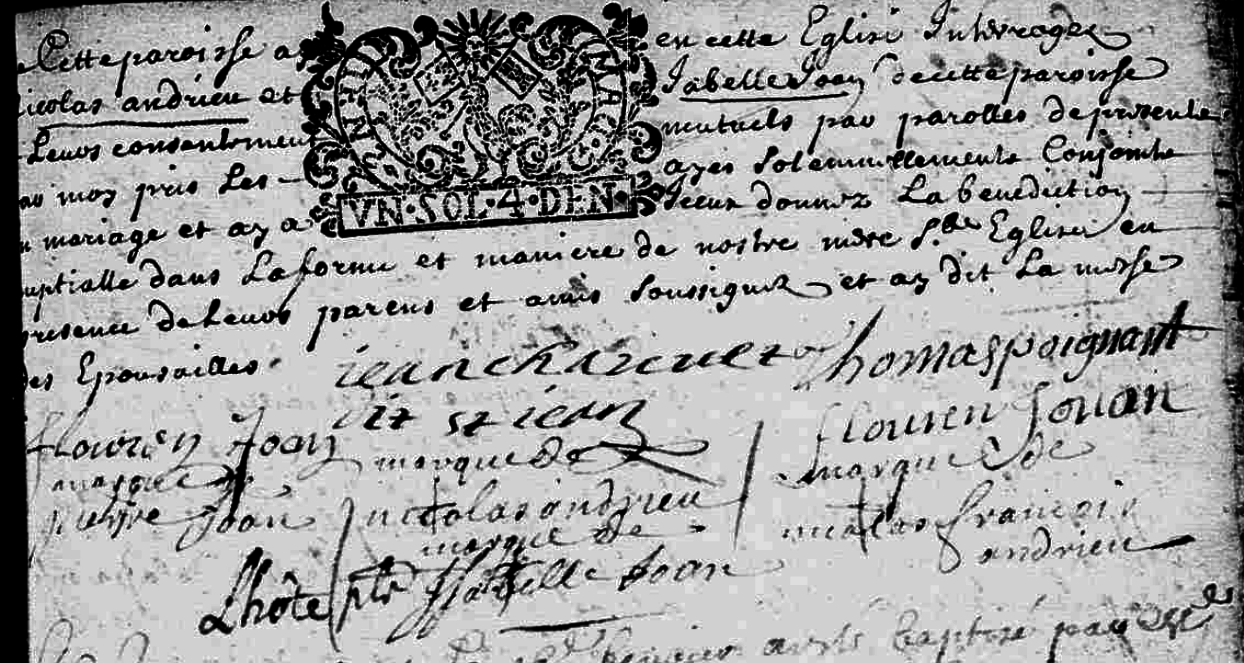 Cette paroisse a en cette Eglise Interrogez
icolas andrieu et Isabelle Joan de cette paroisse
Leurs consentement mutuels par parolles de presente
moy pris Les ayes solemnellemente Conjointe
mariage et ay a Iceux donnez La benediction
uptialle dans La forme et maniere de nostre mere Ste Eglise en
resence de Leurs parens et amis soussignez et ay dit La messe
des Epousailles
FIN MAC
VN·SOL·4·DEN·
jean thomas poignant
dit st jean
flouren Joan flouren Jouan
marque de marque de marque de
pierre Joan nicolas andrieu nicolas francois
marque de andrieu
Lhôte ptr Isabelle Joan
baptizé par